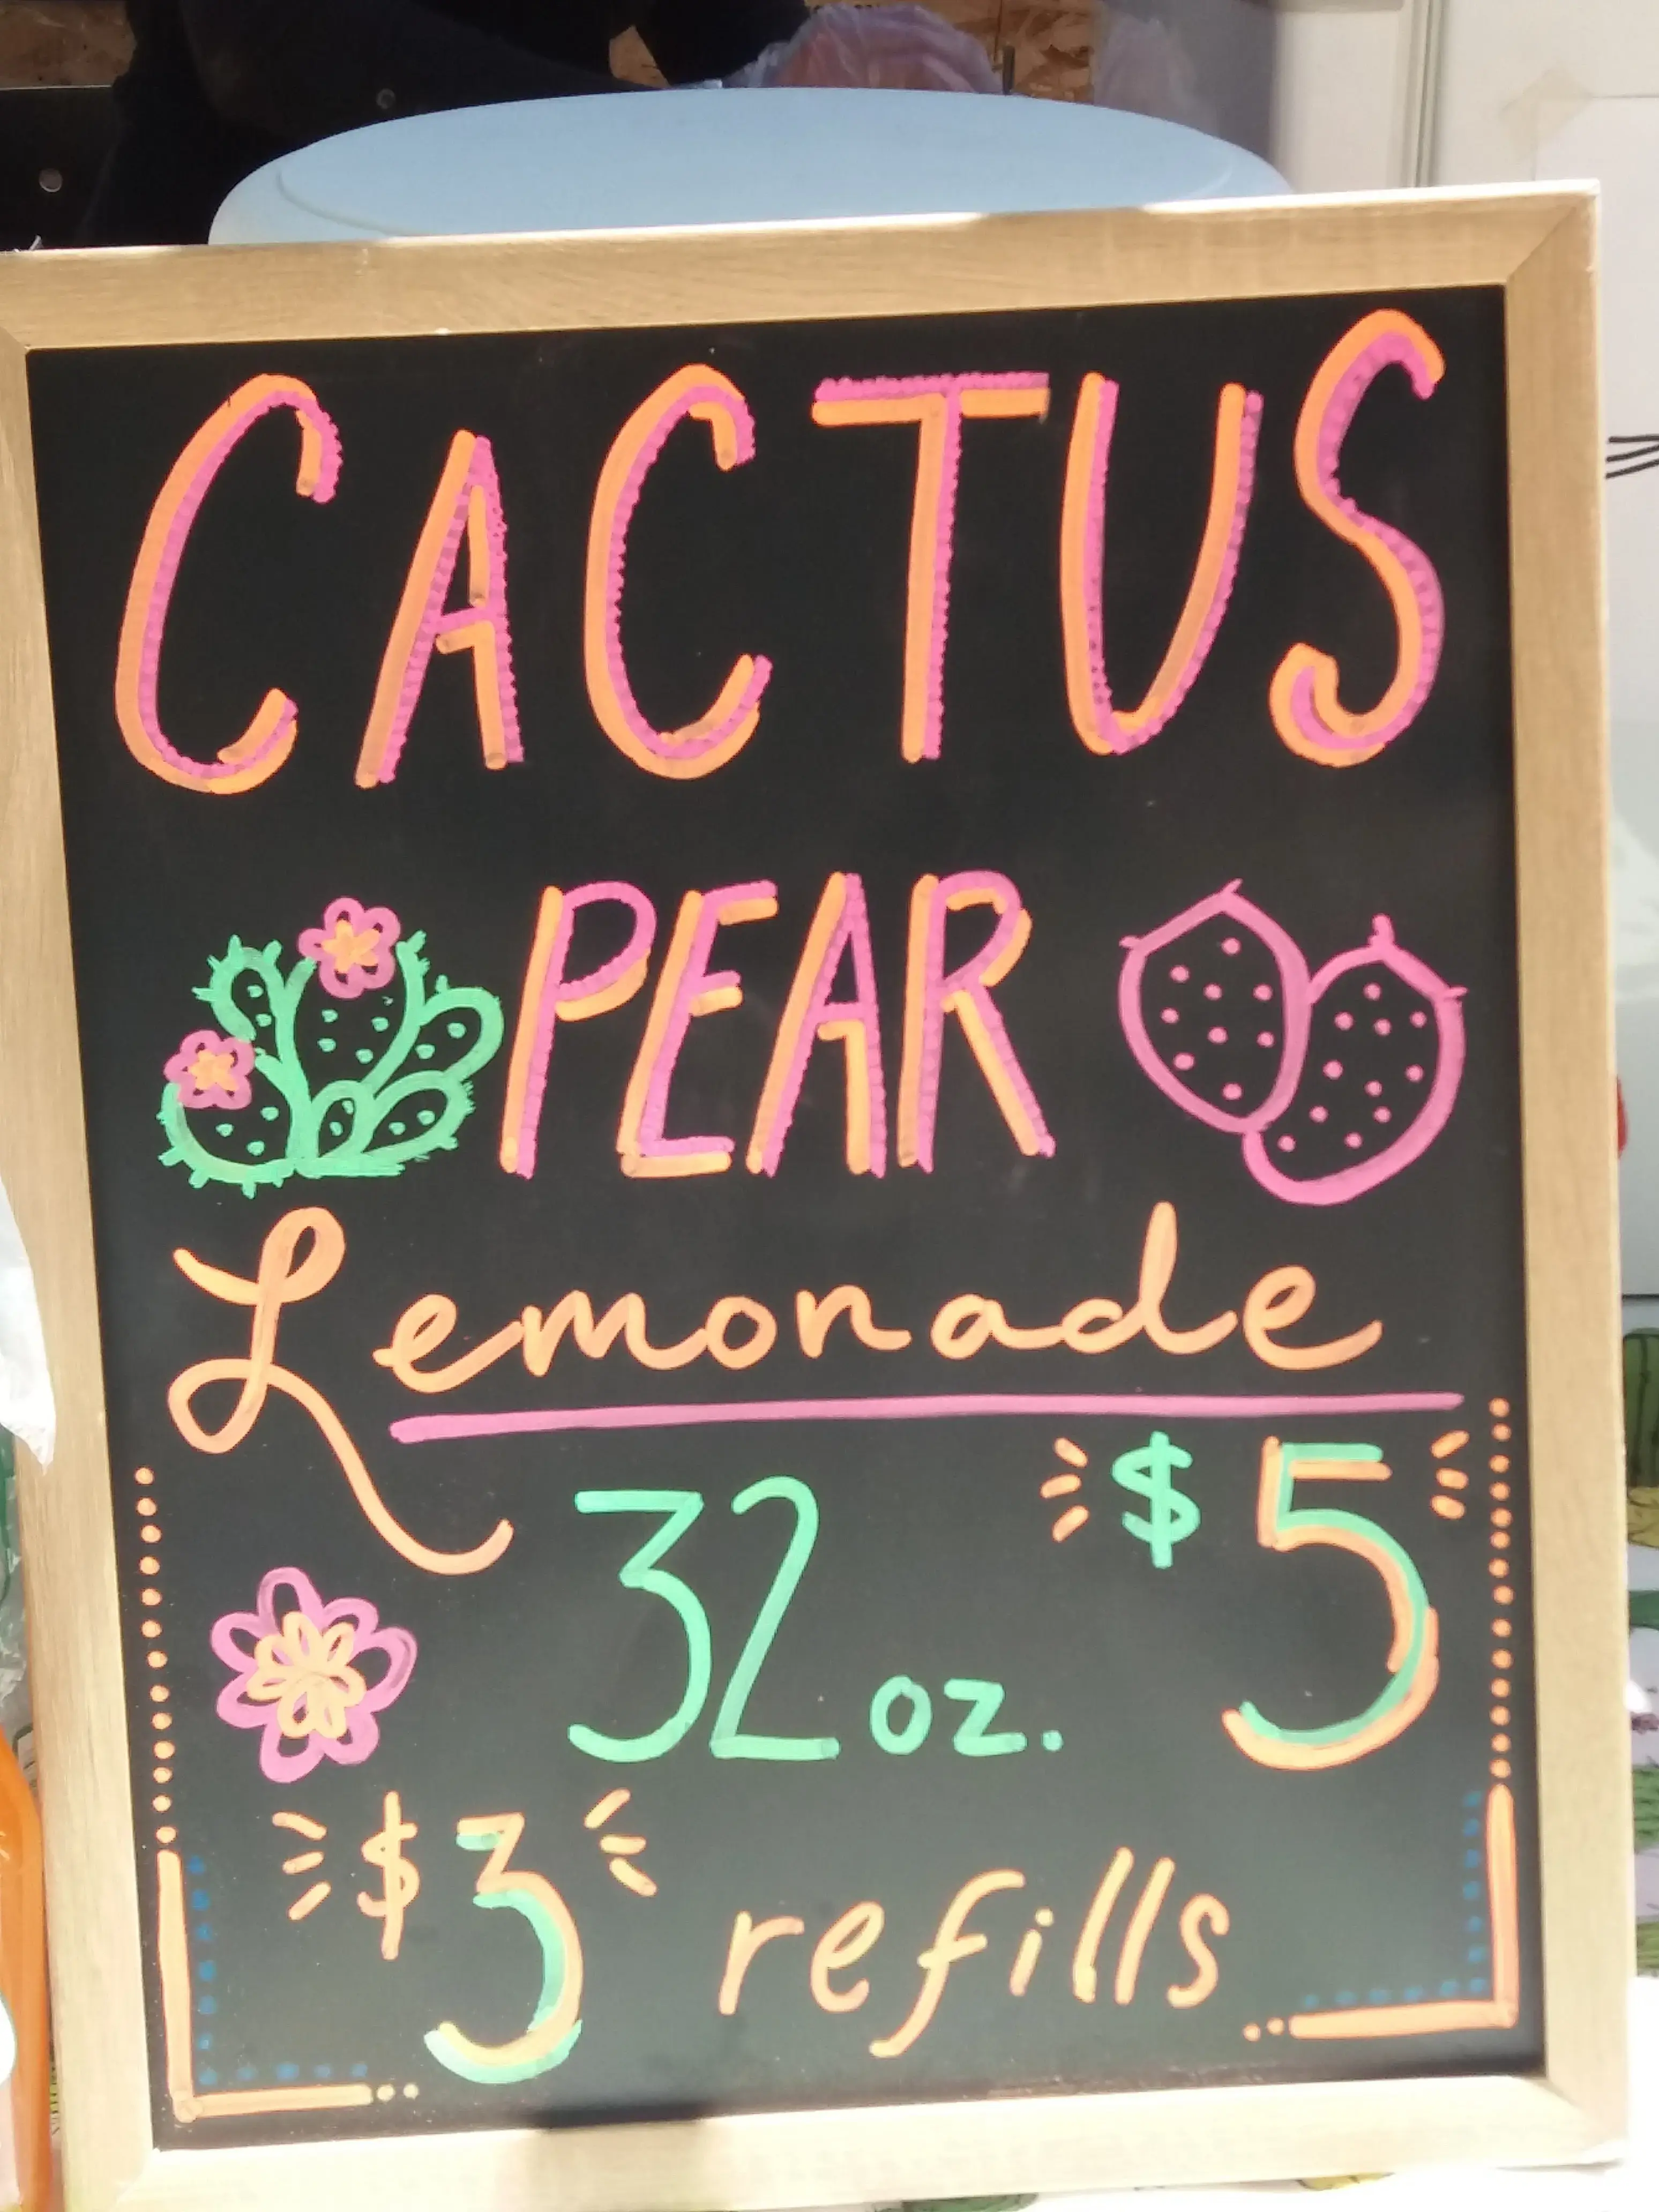 CACTUS
PEAR
Lemonade
32 oz. $5
$3 refills